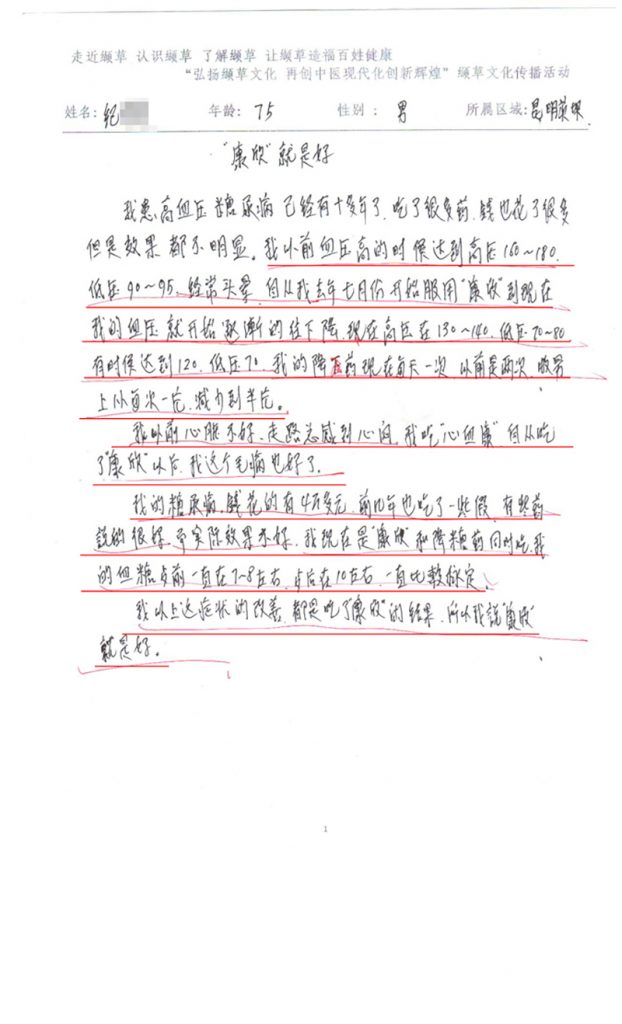 走近缬草 认识缬草 了解缬草 让缬草造福百姓健康
“弘扬缬草文化 再创中医现代化创新辉煌”缬草文化传播活动
姓名: 纪 年龄: 75 性别: 男 所属区域: 昆明
“康欣”就是好
我患高血压糖尿病已经有十多年了.吃了很多药.钱也花了很多
但是效果都不明显。我以前血压高的时候达到高压160~180.
低压90~95.经常头晕.自从我去年七月份开始服用“康欣”到现在
我的血压就开始逐渐的往下降.现在高压在130~140.低压70~80
有时候达到120.低压70.我的降压药现在每天一次.以前是两次.晚
上从每次一片.减少到半片。
我以前心脏不好、走路总感到心闷.我吃“心血康”自从吃
了“康欣”以后.我这个毛病也好了.
我的糖尿病.钱花的有4万多元.前几年也吃了一些假.有些药
说的很好.实际效果不好.我现在是“康欣”和降糖药同时吃.我
的血糖歺前一直在7~8左右.歺后在10左右.一直比较稳定.
我以上这症状的改善.都是吃了“康欣”的结果.所以我说“康欣”
就是好。
1